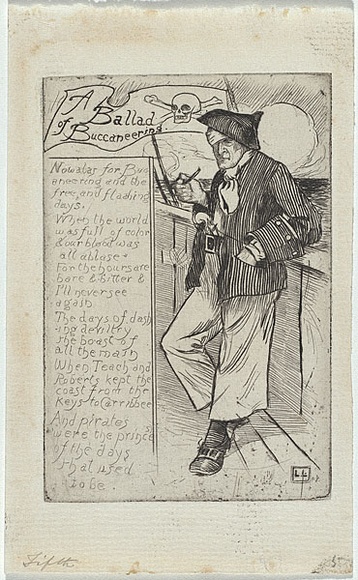 A Ballad
of Buccaneering
Now alas for Buc
aneering and the
free, and flashing
days.
When the world
was full of color
& our blood was
all ablaze
For the hours are
bare & bitter &
I'll never see
again
The days of dash
-ing deviltry
the boast of
all the main
When Teach and
Roberts kept the
coast from the
Keys to Carribee
And pirates
were the prince's
of the days
that used
to be
LL
Fifth